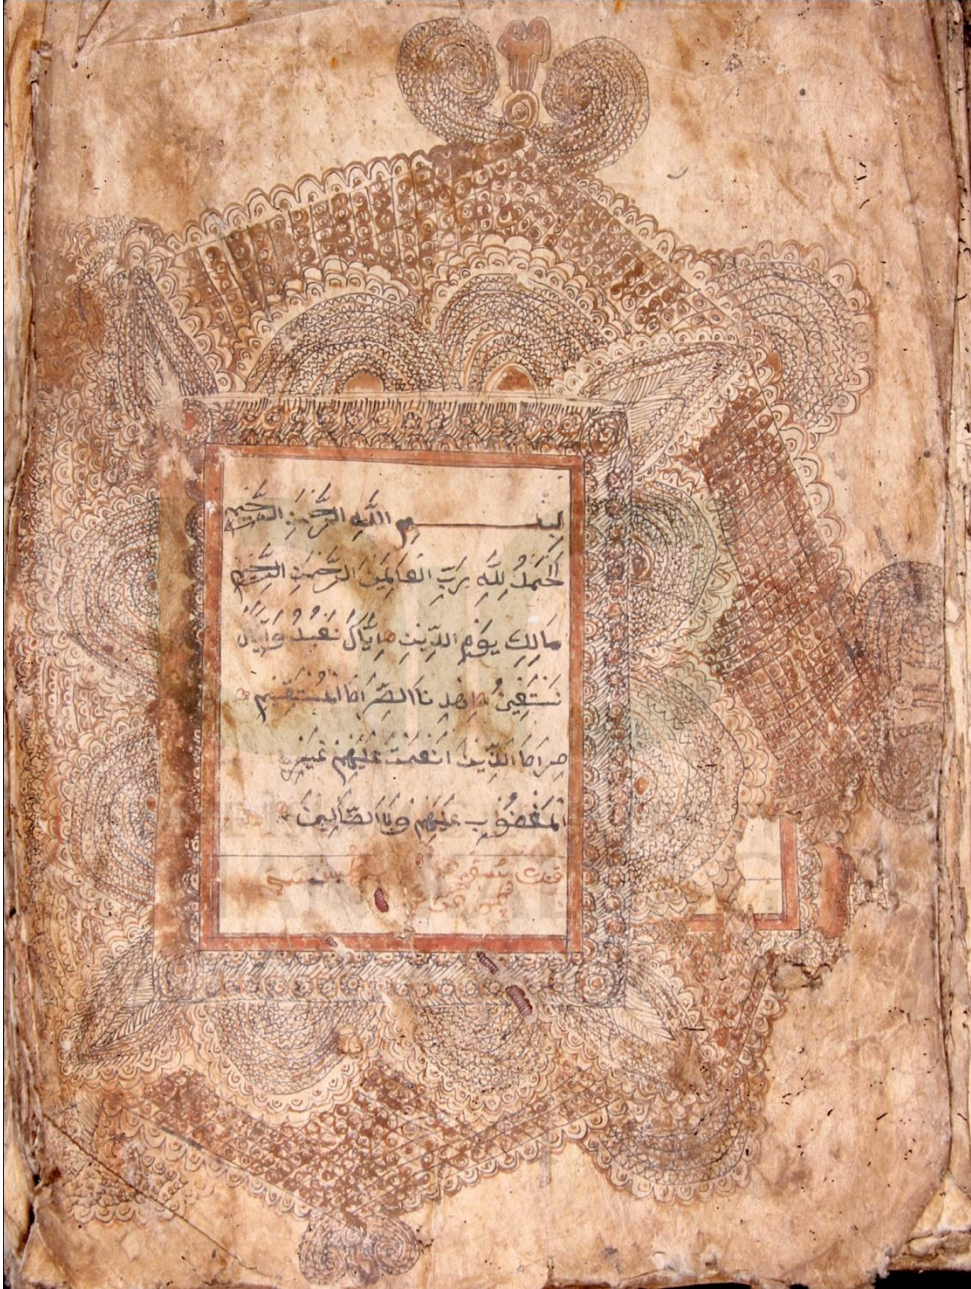 بِسْــــــمِ اللَّهِ الرَّحْمَنِ الرَّحِيمِ
الْحَمْدُ لِلَّهِ رَبِّ الْعَالَمِينَ الرَّحْمَنِ الرَّحِيمِ
مَالِكِ يَوْمِ الدِّينِ إِيَّاكَ نَعْبُدُ وَإِيَّاكَ
نَسْتَعِينُ اهْدِنَا الصِّرَاطَ الْمُسْتَقِيمَ
صِرَاطَ الَّذِينَ أَنْعَمْتَ عَلَيْهِمْ غَيْرِ
الْمَغْضُوبِ عَلَيْهِمْ وَلَا الضَّالِّينَ